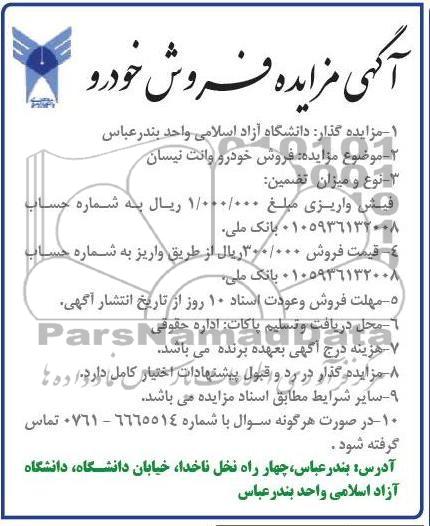 آگهی مزایده فروش خودرو
۱-مزایده گذار: دانشگاه آزاد اسلامی واحد بندرعباس
۲-موضوع مزایده: فروش خودرو وانت نیسان
۳-نوع و میزان تضمین:
فیش واریزی مبلغ ۱/۰۰۰/۰۰۰ ریال به شماره حساب
۰۱۰۵۹۳۶۱۳۲۰۰۸ بانک ملی.
۴- قیمت فروش ۳۰۰/۰۰۰ریال از طریق واریز به شماره حساب
۰۱۰۵۹۳۶۱۳۲۰۰۸ بانک ملی.
۵-مهلت فروش وعودت اسناد ۱۰ روز از تاریخ انتشار آگهی.
۶-محل دریافت وتسلیم پاکات: اداره حقوقی
۷-هزینه درج آگهی بعهده برنده می باشد.
۸-مزایده گذار در رد و قبول پیشنهادات اختیار کامل دارد.
۹-سایر شرایط مطابق اسناد مزایده می باشد.
۱۰-در صورت هرگونه سوال با شماره ۶۶۶۵۵۱۴ - ۰۷۶۱ تماس
گرفته شود .
آدرس: بندرعباس،چهار راه نخل ناخدا، خیابان دانشگاه، دانشگاه
آزاد اسلامی واحد بندرعباس
ParsNamadData